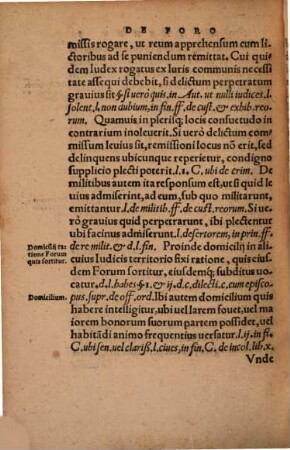 DE FORO
missis rogare, ut reum apprehensum cum li-
ctoribus ad se puniendum remittat. Cui qui
dem Iudex rogatus ex Iuris communis necessi
tate assequi debebit, si delictum perpetratum
grauius sit & si uerò quis, in Aut. ut nulli iudices. l.
solent, l. non dubium, in fin. ff. de cust. & exhib. reo-
rum. Quamuis in plerisq; locis consuetudo in
contrarium inoleuerit. Si uerò delictum com-
missum leuius sit, remissioni locus nõ erit, sed
delinquens ubicunque reperietur, condigno
supplicio plecti poterit. l. 1. C. ubi de crim. De
militibus autem ita responsum est, ut si quid le
uius admiserint, ad eum, sub quo militarunt,
emittantur. l. de militib. ff. de cust. reorum. Si ue-
rò grauius quid perpetrarunt, ibi plectentur
ubi facinus admiserunt. l. desertorem, in prin. ff.
de re milit. & d. l. fin. Proinde domicilij in ali-
Domicilij ra
tione Forum
quis sortitur.
cuius Iudicis territorio fixi ratione, quis eius,
dem Forum sortitur, eiusdemq; subditus uo-
catur. d. l. habes § 1. & ij. d. c. dilecti. c. cum episco-
Domicilium.
pus. supr. de off. ord. Ibi autem domicilium quis
habere intelligitur, ubi uel larem fouet, uel ma
iorem bonorum suorum partem possidet, uel
habitãdi animo frequentius uersatur. l. ij. in fi.
C. ubi sen. uel clariss. l. ciues, in fin, C. de incol. lib. x.
Vnde